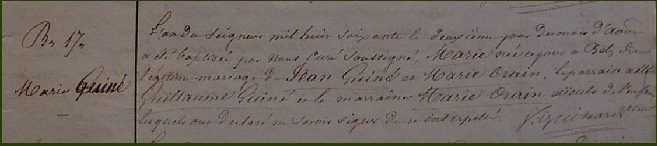 Bs 17.
Marie Guiné
L'an du Seigneur mil huit soixante le deuxième jour du mois d'Août
a été baptisée par Nous Curé soussigné, Marie née ce jour à Bel, du
légitime mariage de Jean Guiné et Marie Orain, le parrain a été
Guillaume Guiné et la marraine Marie Orain aieuls de l'enfant
lesquels ont déclaré ne savoir signer de ce interpellés